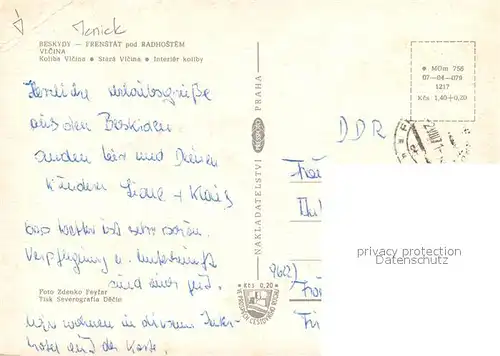 Janick
BESKYDY — FRENŠTÁT pod RADHOŠTĚM
VLČINA
Koliba Vlčina ● Stará Vlčina ● Interiér koliby
Herzliche Urlaubsgrüße
aus den Beskiden
senden wir und Deinen
Kindern Liane + Klaus
Das Wetter ist sehr schön.
Verpflegung u. Unterkunft
sind auch gut.
Wir wohnen in diesem Inter-
hotel auf der Karte.
Foto Zdenko Feyfar
Tisk Severografia Děčín
NAKLADATELSTVÍ PRAHA
Kčs 0,20
● MOm 756
07-04-079
1217
Kčs 1,40+0,20
DDR
privacy protection
Datenschutz